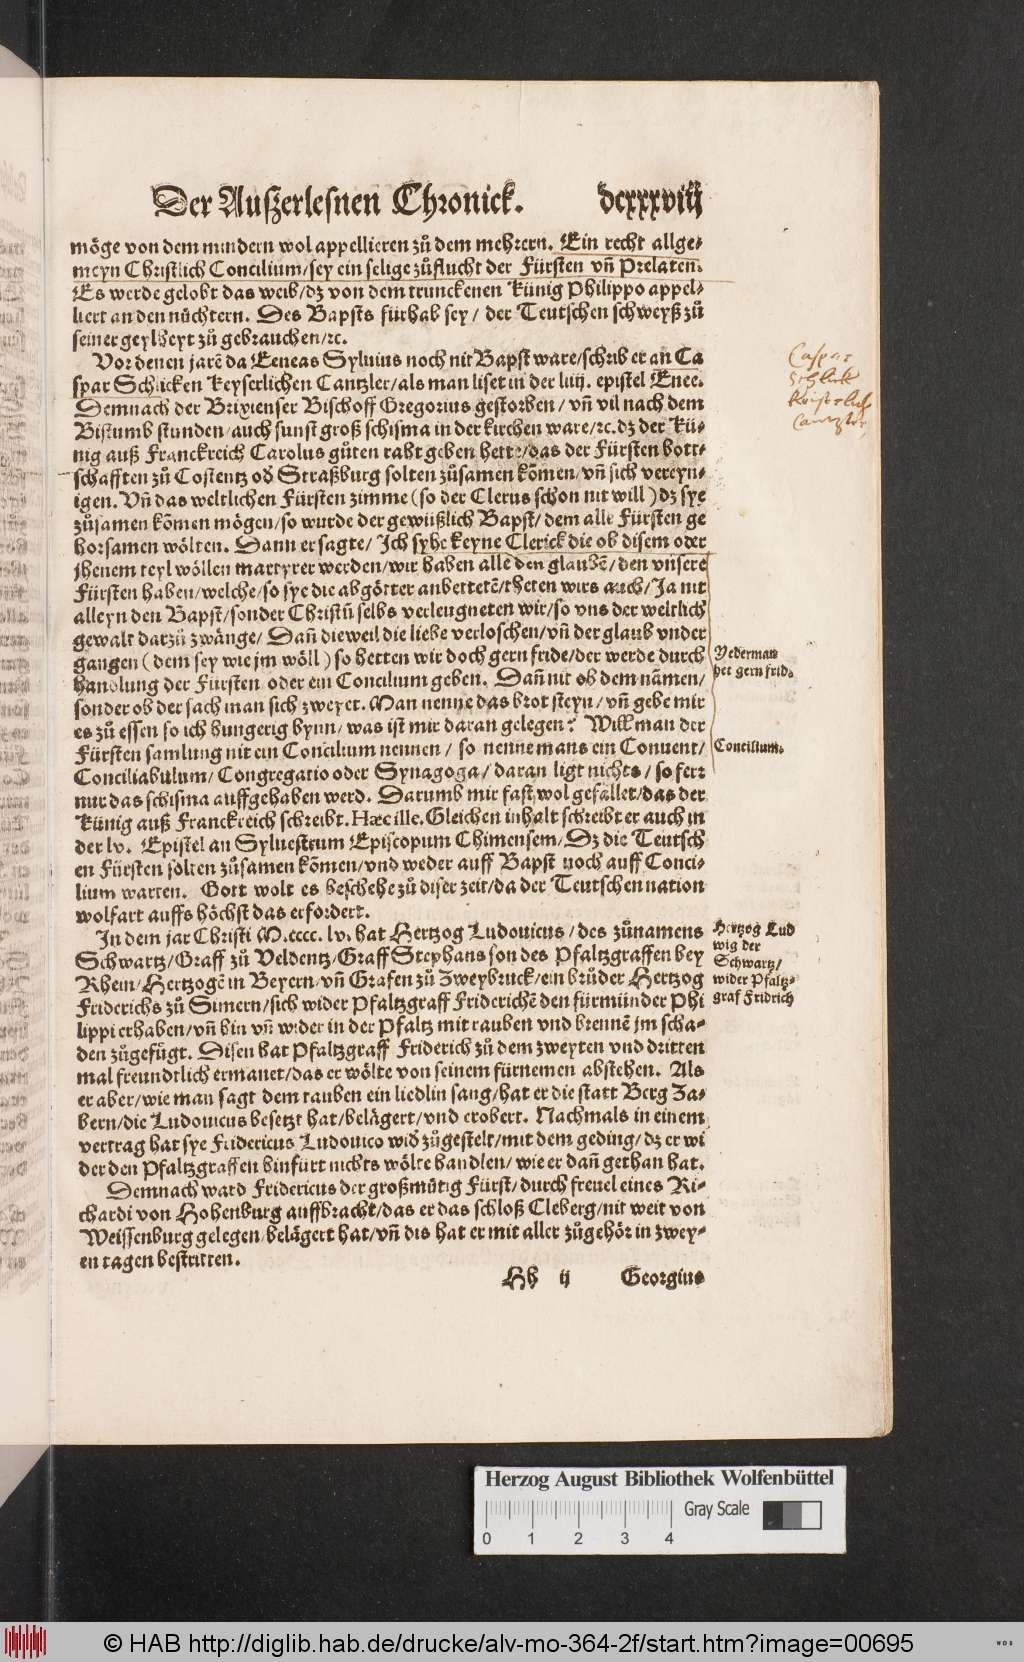 Der Außerlesnen Chronick. dcxxxviij
möge von dem mindern wol appellieren zů dem mehrern. Ein recht allge-
meyn Christlich Concilium/sey ein selige zůflucht der Fürsten vñ Prelaten.
Es werde gelobt das weib/dz von dem trunckenen Künig Philippo appel-
liert an den nüchtern. Des Bapsts fürhab sey/ der Teutschen schweyß zů
seiner geylheyt zů gebrauchen/ꝛc.
Vor denen jarē da Eeneas Syluius noch nit Bapst ware/schrib er an Ca
spar Schlicken Keyserlichen Cantzler/als man liset in der liiij. epistel Enee.
Demnach der Brixienser Bischoff Gregorius gestorben/ vñ vil nach dem
Bistumb stunden/auch sunst groß schisma in der kirchen ware/ꝛc.dz der Kü-
nig auß Franckreich Carolus gůten raht geben hette/das der Fürsten bott-
schafften zů Costentz od Straßburg solten zůsamen kōmen/vñ sich vereyn-
igen. Vñ das weltlichen Fürsten zimme (so der Clerus schon nit will) dz sye
zůsamen kōmen mögen/so wurde der gewüßlich Bapst/dem alle Fürsten ge
horsamen wölten. Dann er sagte/ Ich syhe keyne Clerick die ob disem oder
jhenem teyl wöllen martyrer werden/wir haben alle den glaubē/den vnsere
Fürsten haben/welche/so sye die abgötter anbettetē/theten wirs auch/Ja nit
alleyn den Bapst/sonder Christū selbs verleugneten wir/so vns der weltlich
gewalt darzů zwänge/ Dañ dieweil die liebe verloschen/vñ der glaub vnder
gangen (dem sey wie jm wöll) so hetten wir doch gern fride/der werde durch
handlung der Fürsten oder ein Concilium geben. Dañ nit ob dem nāmen/
sonder ob der sach man sich zweyet. Man nenne das brot steyn/ vñ gebe mir
es zů essen so ich hungerig bynn/ was ist mir daran gelegen? Will man der
Fürsten samlung nit ein Concilium nennen/ so nenne mans ein Conuent/
Conciliabulum/ Congregatio oder Synagoga/ daran ligt nichts/ so ferr
nur das schisma auffgehaben werd. Darumb mir fast wol gefället/das der
Künig auß Franckreich schreibt. Hæc ille. Gleichen inhalt schreibt er auch in
der lv. Epistel an Syluestrum Episcopum Chimensem/ Dz die Teutsch
en Fürsten solten zůsamen kōmen/vnd weder auff Bapst noch auff Conci-
lium warten. Gott wolt es beschehe zů diser zeit/da der Teutschen nation
wolfart auffs höchst das erfordert.
In dem jar Christi M.cccc. lv. hat Hertzog Ludouicus/ des zůnamens
Schwartz/Graff zů Veldentz/Graff Stephans son des Pfaltzgraffen bey
Rhein/Hertzogē in Beyern/vñ Grafen zů Zweybruck/ein brůder Hertzog
Friderichs zů Simern/sich wider Pfaltzgraff Friderichē den fürmünder Phi
lippi erhaben/vñ hin vñ wider in der Pfaltz mit rauben vnd brennē jm scha-
den zůgefůgt. Disen hat Pfaltzgraff Friderich zů dem zweyten vnd dritten
mal freundtlich ermanet/das er wölte von seinem fürnemen abstehen. Als
er aber/wie man sagt dem tauben ein liedlin sang/hat er die statt Berg Za-
bern/die Ludouicus besetzt hat/belägert/vnd erobert. Nachmals in einem
vertrag hat sye Fridericus Ludouico wid zůgestelt/mit dem geding/dz er wi
der den Pfaltzgraffen hinfürt nichts wölte handlen/wie er dañ gethan hat.
Demnach ward Fridericus der großmütig Fürst/durch freuel eines Ri-
chardi von Hohenburg auffbracht/das er das schloß Cleberg/nit weit von
Weissenburg gelegen/belägert hat/vñ dis hat er mit aller zůgehör in zwey-
en tagen bestritten.
Hh ij Georgius
Caspar
Schlick
Keiserlich
Cantzler
Yederman
het gern frid.
Concilium.
Hertzog Lud
wig der
Schwartz/
wider Pfaltz-
graf Fridrich
Herzog August Bibliothek Wolfenbüttel
Gray Scale
0 1 2 3 4
© HAB http://diglib.hab.de/drucke/alv-mo-364-2f/start.htm?image=00695